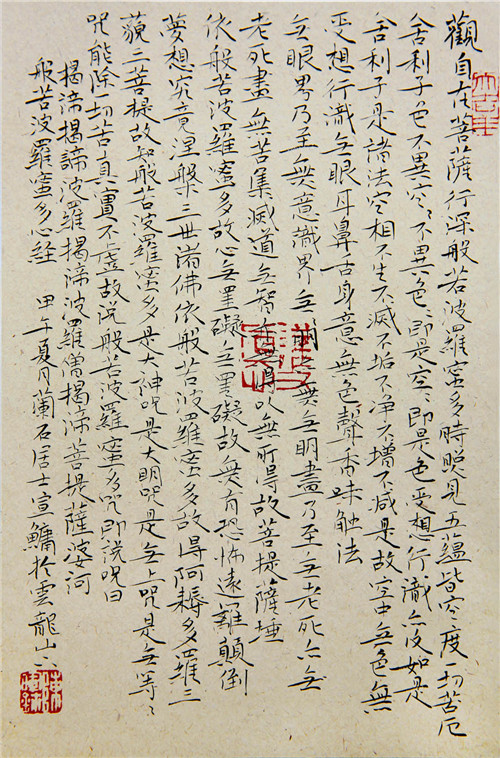 觀自在菩薩行深般若波羅蜜多時照見五蘊皆空度一切苦厄
舍利子色不異空〻不異色〻即是空〻即是色受想行識亦復如是
舍利子是諸法空相不生不滅不垢不净不增不减是故空中無色無
受想行識无眼耳鼻舌身意無色聲香味触法
无眼界乃至無意識界无無无明盡乃至无老死亦無
老死盡無苦集滅道无智亦以無所得故菩提薩埵
依般若波羅蜜多故心无罣礙无罣礙故無有恐怖遠離顛倒
夢想究竟涅槃三世諸佛依般若波羅蜜多故得阿耨多羅三
藐三菩提故知般若波羅蜜多是大神咒是大明咒是无上咒是無等〻
咒能除一切苦真實不虛故説般若波羅蜜多咒即説咒曰
揭諦揭諦波羅揭諦波羅僧揭諦菩提薩婆訶
般若波羅蜜多心経 甲午夏月蘭石居士宣鏞於雲龍山下